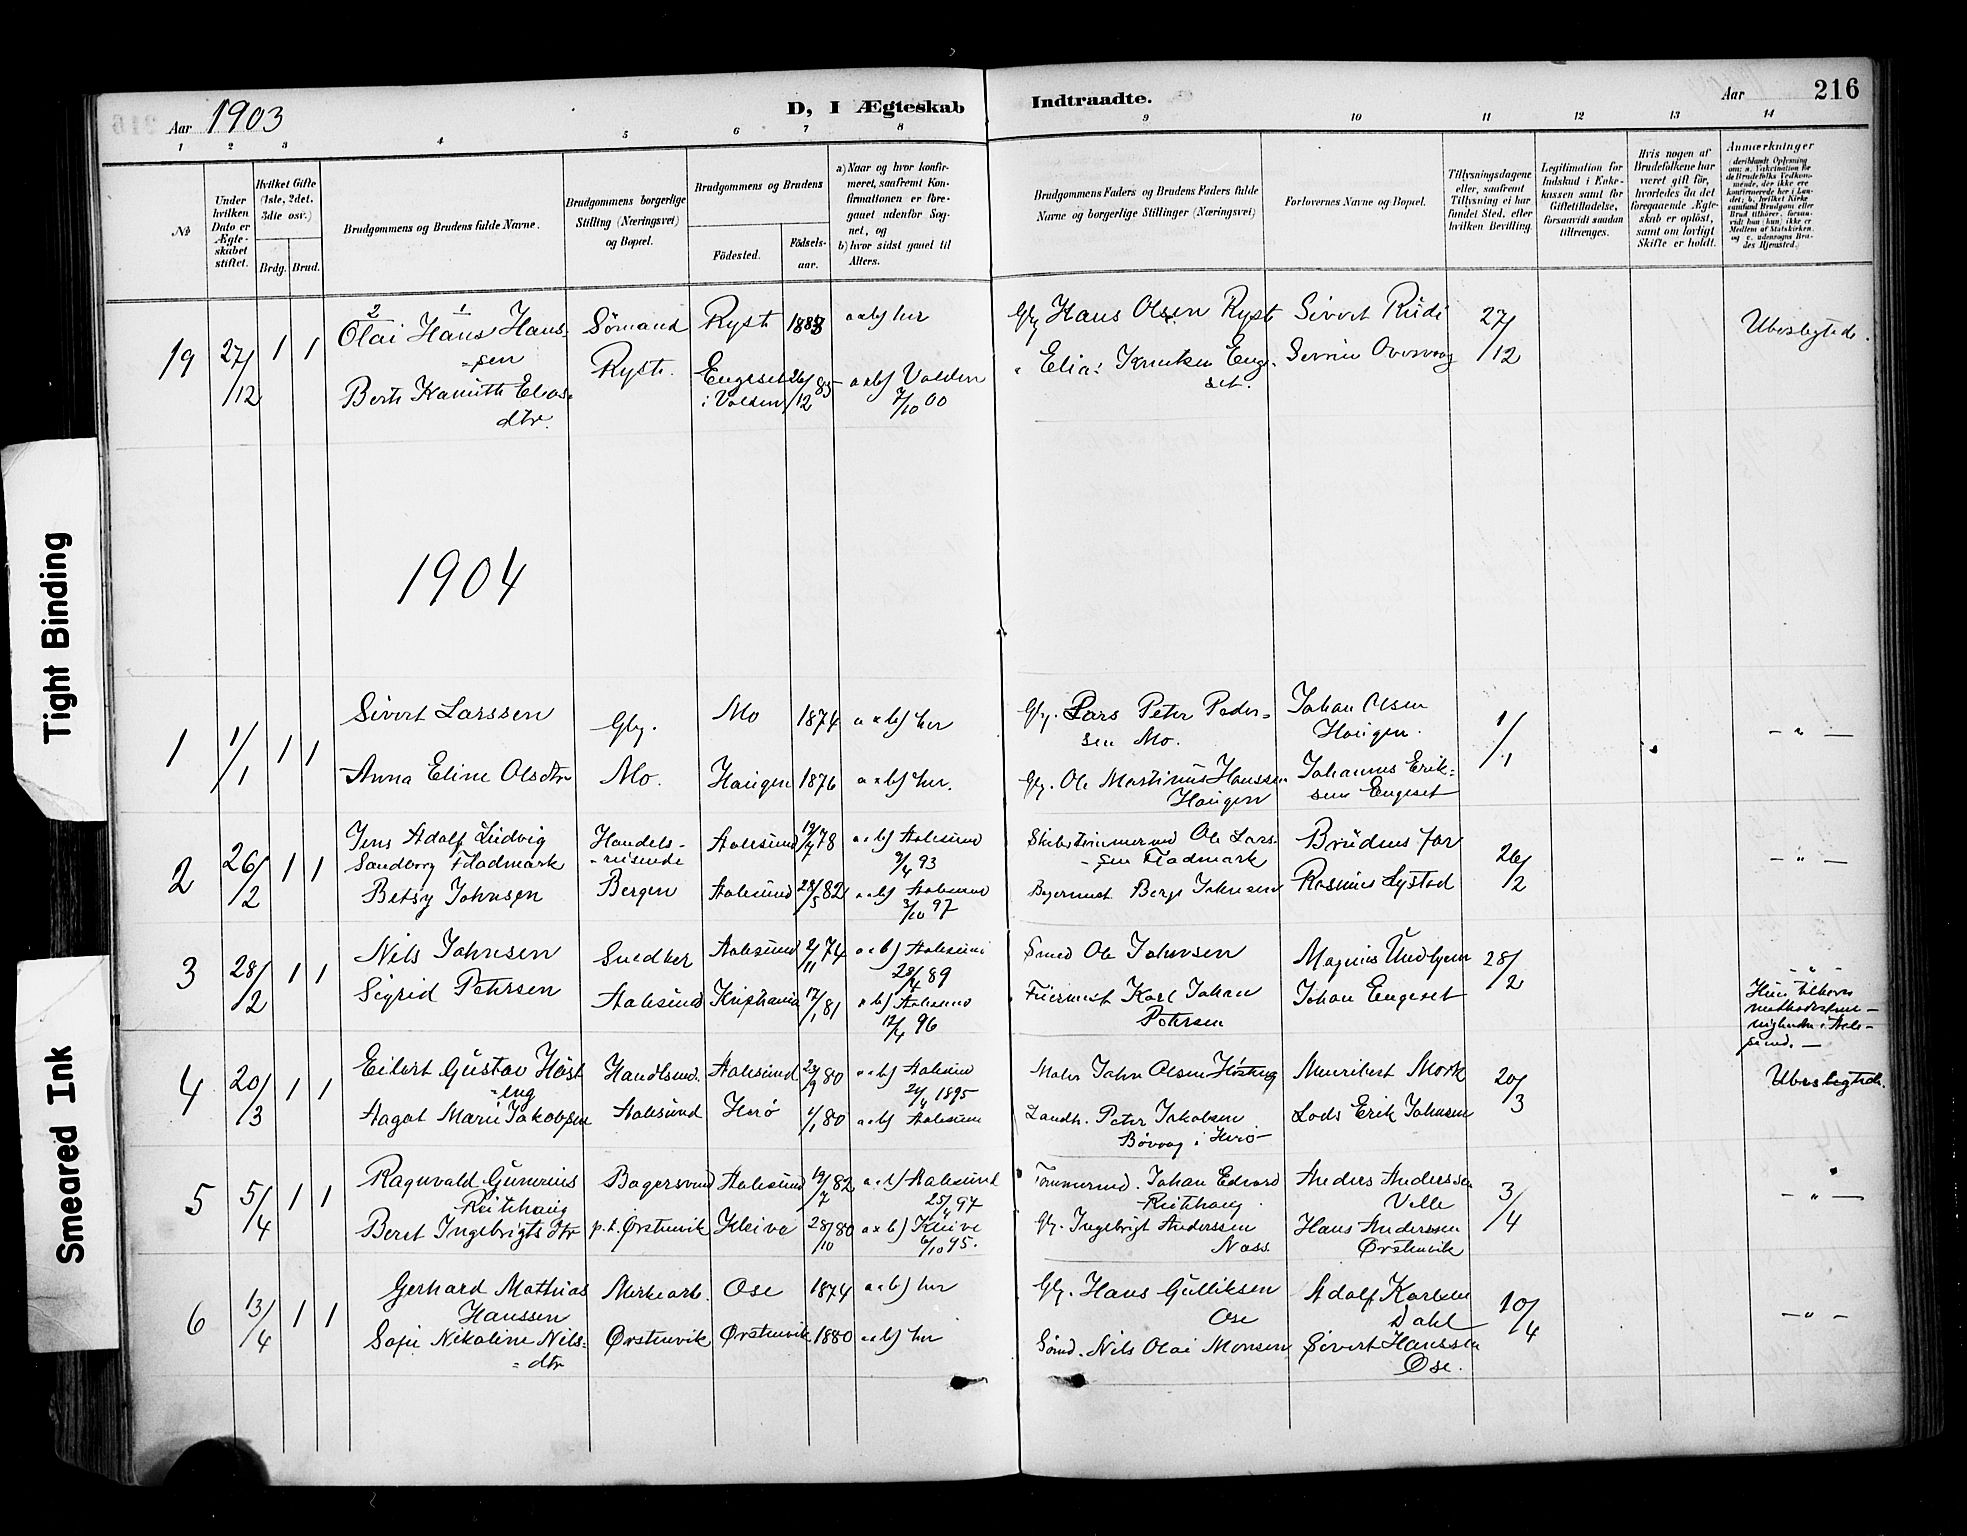 Tight Binding
Smeared Ink
Aar 1903
D, I Ægteskab Indtraadte.
Aar 216
1 2 3 4 5 6 7 8 9 10 11 12 13 14
No
Under hvilken Dato er Ægteskabet stiftet.
Hvilket Gifte (1ste, 2det, 3die osv.)
Brdg. Brud.
Brudgommens og Brudens fulde Navne.
Brudgommens borgerlige Stilling (Næringsvei) og Bopæl.
Brudgommens og Brudens
Fødested.
Fødselsaar.
a) Naar og hvor konfirmeret, saafremt Konfirmationen er foregaaet udenfor Sognet, og
b) hvor sidst gaaet til Alters.
Brudgommens Faders og Brudens Faders fulde Navne og borgerlige Stillinger (Næringsvei)
Forlovernes Navne og Bopæl.
Tillysningsdagene eller, saafremt Tillysning ei har fundet Sted, efter hvilken Bevilling.
Legitimation for Indskud i Enkekassen samt for Giftetilladelse, forsaavidt saadan tiltrænges.
Hvis nogen af Brudefolkene har været gift før, hvorledes da det foregaaende Ægteskab er opløst, samt om lovligt Skifte er holdt.
Anmærkninger
19 27/12 1 1
2 1
Olai Hans Hans-
sen
Sømand
Ryst.
Ryst 1883
a og b) her
Gbr. Hans Olsen Ryst
Sivert
27/12
Ubeslegtede.
Elias Knutsen Eng-
set.
Engeset
i Volden
26/12 85
a og b) Volden
7/10 00
dtr.
1904
1 1/1 1 1
Sivert Larssen
Gbr.
Mo 1874
a og b) her
Gbr. Lars Peter Peder-
sen Mo.
Johan Olsen
Haugen.
1/1
- " -
Anna Eline Olsdtr
Mo.
Haugen 1876
a og b) her.
Gbr. Ole Martinus Hanssen
Haugen
Johannes Erik-
sen Engeset
2 26/2 1 1
Jens Adolf Ludvig
Sandborg Fladmark
Handels-
reisende
Aalesund 19/7 78
a og b) Aalesund
9/4 93
Ole Lars-
sen Fladmark
Brudens far
26/2
- " -
Betsy Johnsen
Bergen
Aalesund 28/5 82
a og b) Aalesund
3/10 97
Johnsen
Rasmus Lystad
3 28/2 1 1
Nils Johnsen
Snedker
Aalesund 2/11 74
a og b) Aalesund
28/4 89
Smed Ole Johnsen
Magnus Undhjem
28/2
- " -
Sigrid Petersen
Aalesund
Kristiania 17/1 81
a og b) Aalesund
12/4 96
Karl Johan
Petersen
Johan Engeset
4 20/3 1 1
Eilert Gustav Høst-
eng
Handlsmd.
Aalesund 29/9 80
a og b) Aalesund
21/4 1895
Maler John Olsen Høsteng
Mork
20/3
Ubeslegtede.
Aagot Marie Jakobsen
Aalesund
Herø 1/1 80
a og b) Aalesund
Landh. Peter Jakobsen
Bøvaag i Herø
Lods Erik Johnsen
5 5/4 1 1
Ragnvald Gunerius
Reitehaug
Bagersvend
Aalesund 19/7 82
a og b) Aalesund
25/4 97
Tømmermd. Johan Edvard
Reitehaug.
Anders Anderssen
Velle
3/4
- " -
Beret Ingebrigtsdtr
p.t. Ørstenvik
Kleive 28/10 80
a og b) Kleive
6/10 95.
Gbr. Ingebrigt Anderssen
Nass
Hans Anderssen
Ørstenvik
6 13/4 1 1
Gerhard Mathias
Hanssen
Merkearb.
Ose 1874
a og b) her
Gbr. Hans Gulliksen
Ose
Adolf Karlsen
Dahl
10/4
- " -
Sofie Nikoline Nils-
dtr
Ørstenvik
Ørstenvik 1880
a og b) her
Sømd. Nils Olai Monsen
Sivert Hanssen
Ose.